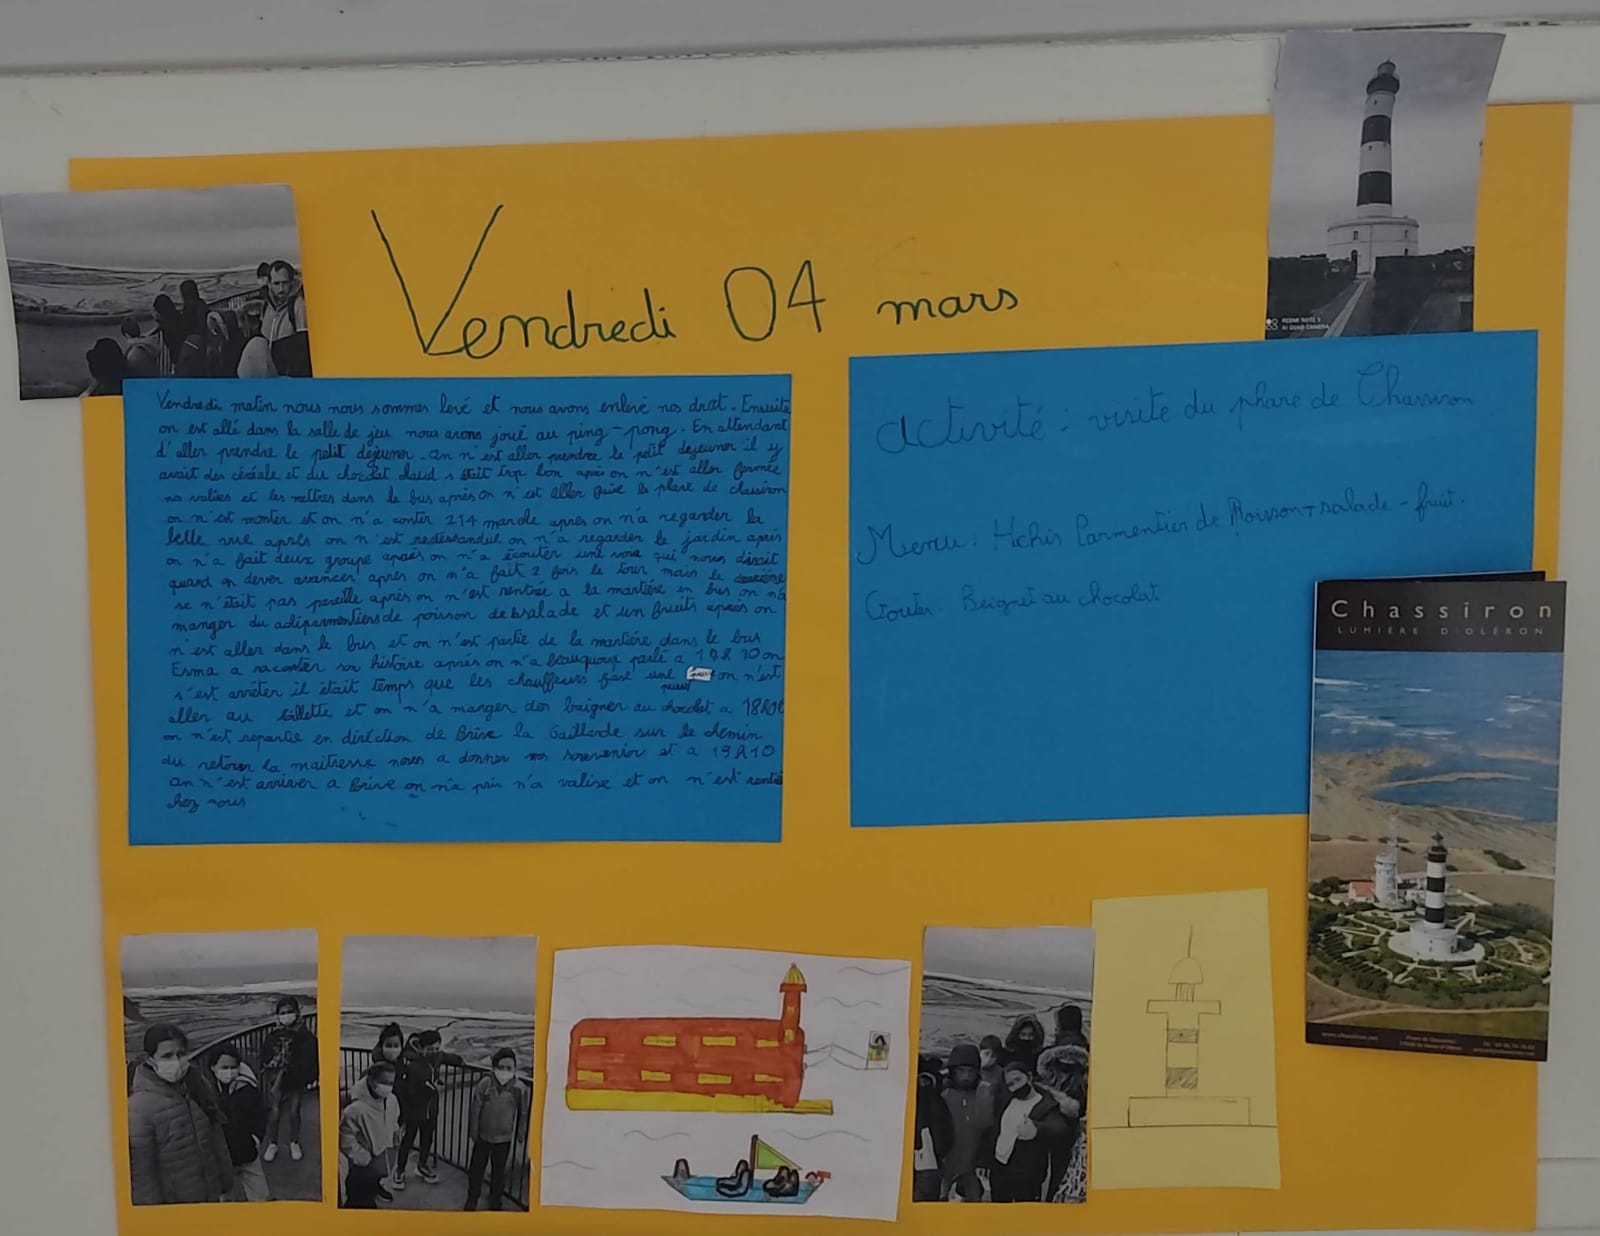 Vendredi 04 mars
REDMI NOTE 9
AI QUAD CAMERA
Vendredi matin nous nous sommes levé et nous avons enlevé nos drat. Ensuite
on est allé dans la salle de jeu nous avons joué au ping-pong. En attendant
d'aller prendre le petit déjeuner. on n'est aller prendre le petit dejeuner il y
avait des céréale et du chocolat chaud s était trop bon après on n'est aller fermée
nos valises et les mettres dans le bus après on n'est aller faire le phare de chassiron
on n'est monter et on n'a conter 214 marche après on n'a regarder la
belle vue après on n'est redéssandue on n'a regarder le jardin après
on n'a fait deux groupe après on n'a écouter une voix qui nous disait
quand on dever avancer après on n'a fait 2 fois le tour mais le deuxième
se n'était pas pareille après on n'est rentrée a la martière en bus on n'a
manger du adiparmentiers de poisson de salade et un fruits après on
n'est aller dans le bus et on n'est partie de la martière dans le bus
Esma a raconter son histoire après on n'a beauquoup parlé a 17h30 on
s'est arréter il était temps que les chauffeurs fase une pause on n'est
aller au toillette et on n'a manger des baigner au chocolat a 18h00
on n'est repartie en diréction de Brive la Gaillarde sur le chemin
du retour la maitresse nous a donner nos souvenir et a 19h10
on n'est arriver a Brive on n'a pris n'os valise et on n'est rentré
chez nous
activité : visite du phare de Chassiron
Menu : Hchis Parmentier de Poisson + salade - fruit.
Gouter. Beignet au chocolat
Chassiron
LUMIÈRE D'OLÉRON
www.chassiron.net